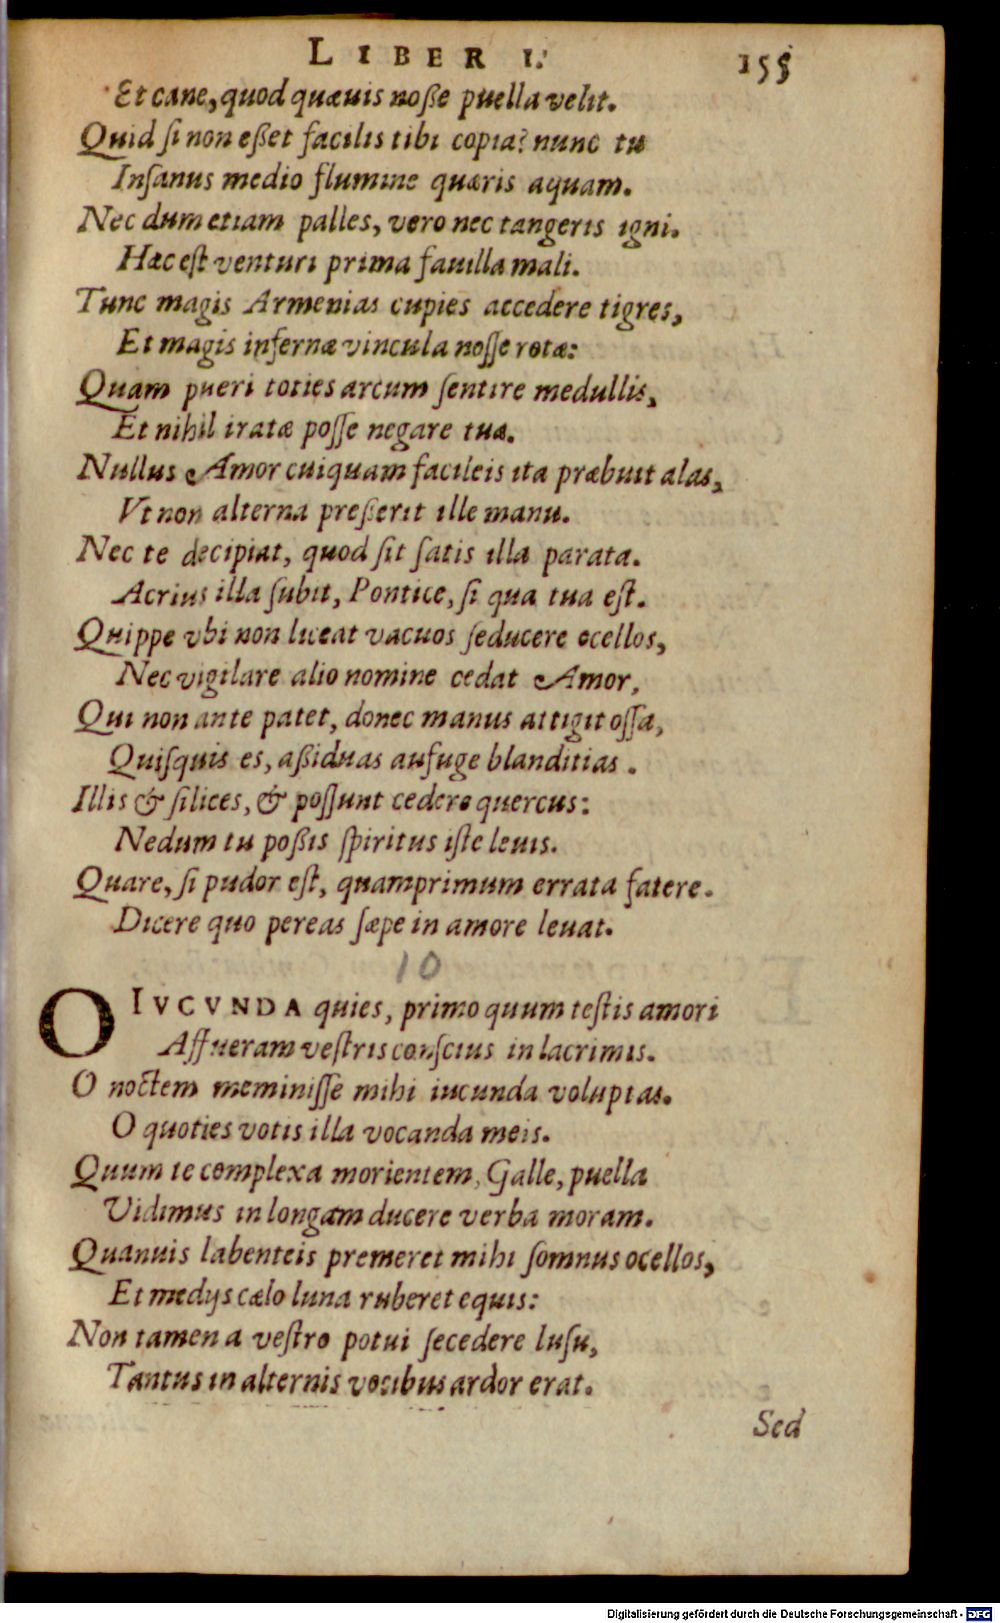 LIBER I.
155
Et cane, quod quæuis noße puella velit.
Quid ſi non eßet facilis tibi copia? nunc tu
Inſanus medio flumine quæris aquam.
Nec dum etiam palles, vero nec tangeris igni.
Hæc eſt venturi prima fauilla mali.
Tunc magis Armenias cupies accedere tigres,
Et magis infernæ vincula noſſe rotæ:
Quam pueri toties arcum ſentire medullis,
Et nihil iratæ poſſe negare tuæ.
Nullus Amor cuiquam facileis ita præbuit alas,
Vt non alterna preßerit ille manu.
Nec te decipiat, quod ſit ſatis illa parata.
Acrius illa ſubit, Pontice, ſi qua tua eſt.
Quippe vbi non liceat vacuos ſeducere ocellos,
Nec vigilare alio nomine cedat Amor,
Qui non ante patet, donec manus attigit oſſa,
Quiſquis es, aßiduas aufuge blanditias.
Illis & ſilices, & poſſunt cedere quercus:
Nedum tu poßis ſpiritus iſte leuis.
Quare, ſi pudor eſt, quamprimum errata fatere.
Dicere quo pereas ſæpe in amore leuat.
10
O IVCVNDA quies, primo quum teſtis amori
Affueram veſtris conſcius in lacrimis.
O noctem meminiſſe mihi iucunda voluptas.
O quoties votis illa vocanda meis.
Quum te complexa morientem, Galle, puella
Vidimus in longam ducere verba moram.
Quanuis labenteis premeret mihi ſomnus ocellos,
Et medijs cælo luna ruberet equis:
Non tamen a veſtro potui ſecedere luſu,
Tantus in alternis vocibus ardor erat.
Sed
Digitalisierung gefördert durch die Deutsche Forschungsgemeinschaft - DFG